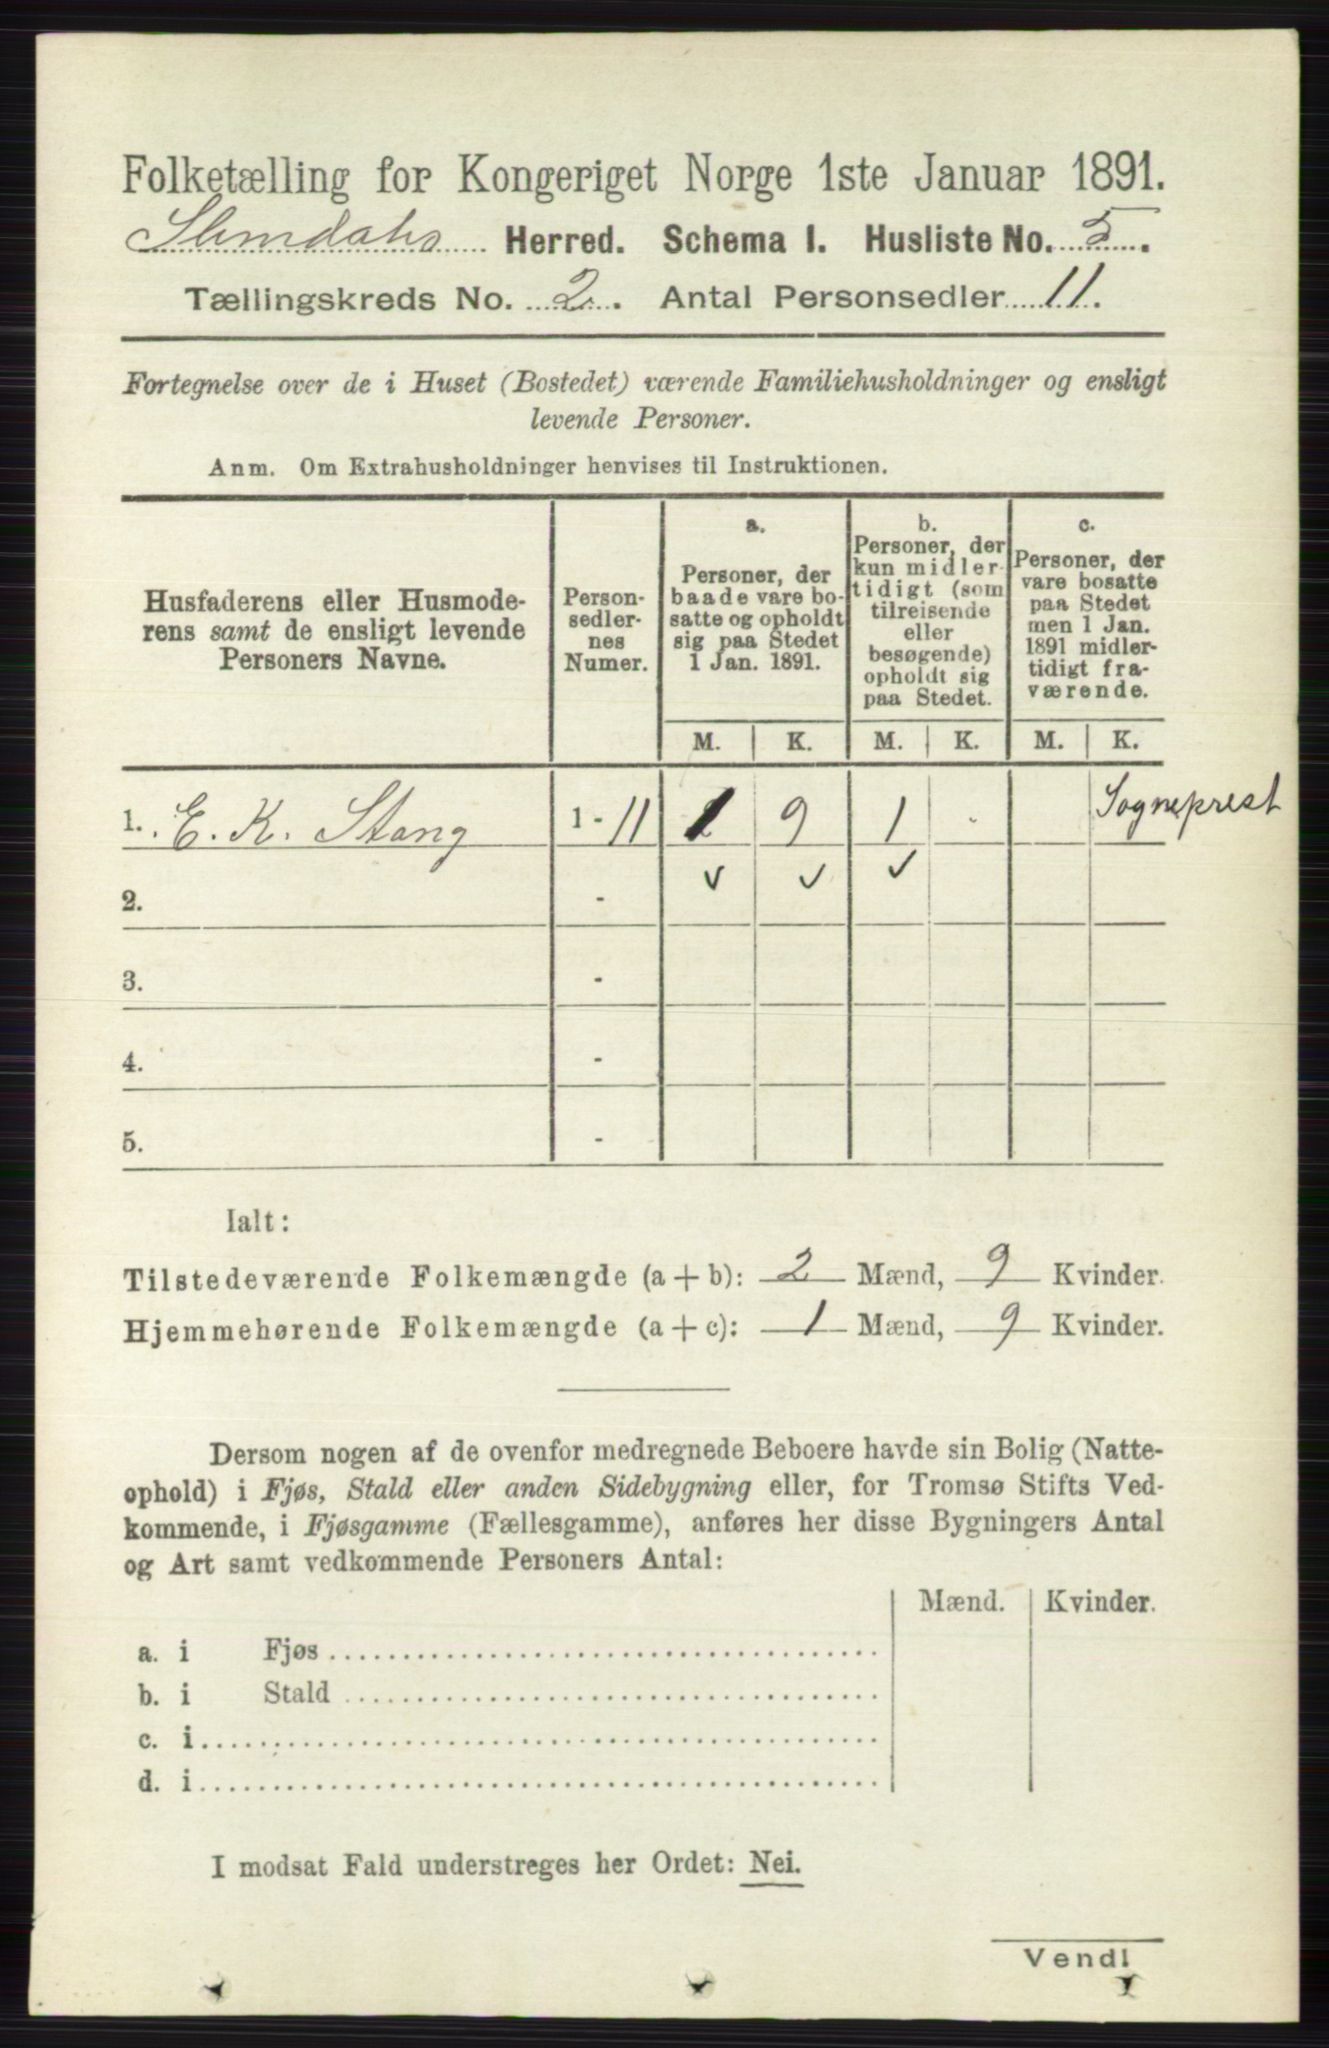 Folketælling for Kongeriget Norge 1ste Januar 1891.
Herred. Schema I. Husliste No. 5.
Tællingskreds No. 2. Antal Personsedler 11.
Fortegnelse over de i Huset (Bostedet) værende Familiehusholdninger og ensligt
levende Personer.
Anm. Om Extrahusholdninger henvises til Instruktionen.
Husfaderens eller Husmode-
rens samt de ensligt levende
Personers Navne.
Person-
sedler-
nes
Numer.
a.
Personer, der
baade vare bo-
satte og opholdt
sig paa Stedet
1 Jan. 1891.
b.
Personer, der
kun midler-
tidigt (som
tilreisende
eller
besøgende)
opholdt sig
paa Stedet.
c.
Personer, der
vare bosatte
paa Stedet
men 1 Jan.
1891 midler-
tidigt fra-
værende.
M. K. M. K. M. K.
1. E. K. Stang 1 - 11 1 9 1 - Sogneprest
2. - ✓ ✓ ✓
3. -
4. -
5. -
Ialt:
Tilstedeværende Folkemængde (a + b): 2 Mænd, 9 Kvinder.
Hjemmehørende Folkemængde (a + c): 1 Mænd, 9 Kvinder.
Dersom nogen af de ovenfor medregnede Beboere havde sin Bolig (Natte-
ophold) i Fjøs, Stald eller anden Sidebygning eller, for Tromsø Stifts Ved-
kommende, i Fjøsgamme (Fællesgamme), anføres her disse Bygningers Antal
og Art samt vedkommende Personers Antal:
Mænd. Kvinder.
a. i Fjøs
b. i Stald
c. i
d. i
I modsat Fald understreges her Ordet: Nei.
Vend!